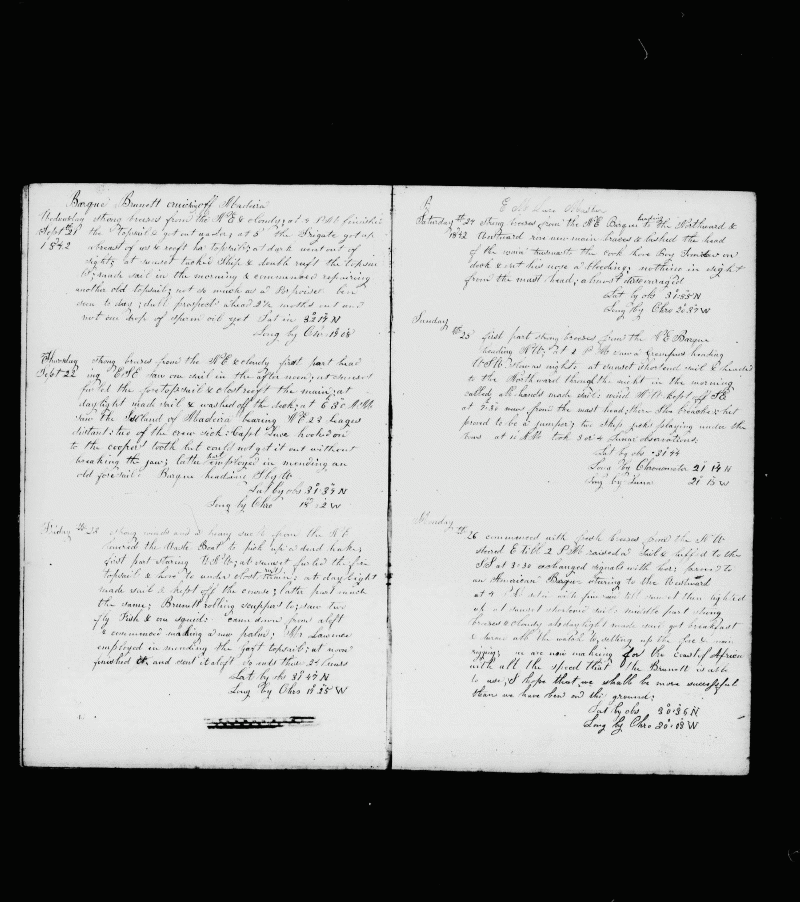 Barque Brunett cruising off Madeira
Wednesday strong breezes from the N E & cloudy; at 4 P M finished
Sept 21 the topsail & got out ; at 5 the frigate got up
1842 abreast of us & reeft her topsails; at dark went out of
sight; at sunset tacked Ship & double reeft the topsail
made sail in the morning & commenced repairing
another old topsail; not so much as a Porpoise been
seen to day; dull prospect ahead 2½ months out and
not one drop of sperm oil yet Lat in 32 17 N
Long by Chr 18 08
Thursday strong breezes from the N E & cloudy first part head
Sept 22 ing E S E saw one sail in the afternoon; at sunset
furled the foretopsail & close reeft the main; at
daylight made sail & washed off the deck; at 8 A M
saw the Island of Madeira bearing N E 23 leagues
distant; two of the crew sick; Capt Luce hooked on
to the coopers tooth but could not get it out without
breaking the jaw; latter part employed in mending an
old foresail Barque heading S by W
Lat by obs 31 34 N
Long by Chro 18 12 W
Friday 23 strong winds and a heavy swell from the N E
lowered the Waist Boat to pick up a dead
first part steering W S W; at sunset furled the fore
topsail & hove to under close reeft main; at daylight
made sail & kept off the course; latter part much
the same; Brunett rolling scuppers to; saw two
fly Fish & one squid; came down from aloft
& commenced making a new ; Mr Lawrence
employed in mending the foretopsail; at noon
finished it and sent it aloft So ends this 24 hours
Lat by obs 31 47 N
Long by Chro 19 35 W
Saturday 24 strong breezes from the N E Barque heading to the Northward &
1842 Westward rove new main braces & the head
of the main the cook hove Boy on
deck & set his nose a bleeding; nothing in sight
from the mast head; almost discouraged
Lat by obs 31 55 N
Long by Chro 20 37 W
Sunday
25 first part strong breezes from the N E Barque
heading N W; at 1 P M saw a Grampus heading
W S W slow as night; at sunset shortened sail & headed
to the Northward through the night in the morning
called all hands made sail; wind N W kept off S E
at 7-30 sung from the mast head, There She breaches; but
proved to be a jumper; two Skip jacks playing under the
bows at 11 A M took 3 or 4 Lunar observations;
Lat by obs 31 44
Long by Chronometer 21 14 N
Long by Luna 21 15 W
Monday
26 commenced with fresh breezes from the N W
steered E till 2 P M raised a Sail & luffed to the
S E at 3-30 exchanged signals with her; proved to
an American Barque steering to the Westward
at 4
up at sunset shortened sail; middle part strong
breezes & cloudy at daylight made sail got breakfast
& turned all the watch to setting up the fore & main
rigging; we are now making for the coast of Africa
with all the speed that the Brunett is able
to use; I hope that we shall be more successful
than we have been on this ground;
Lat by obs 30 36 N
Long by Chro 20 08 W